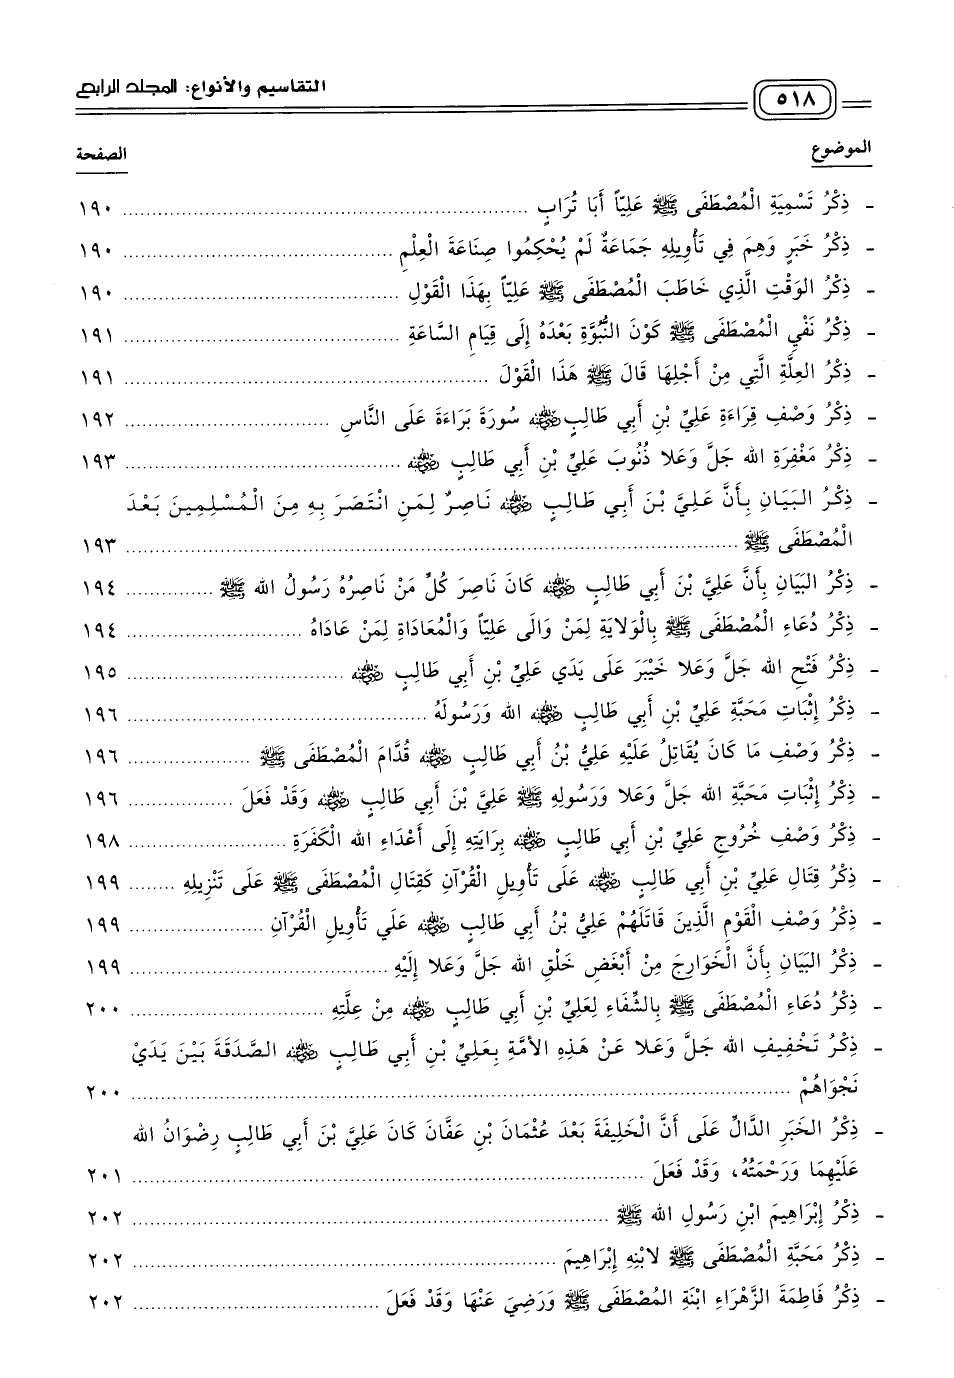 التقاسيم والأنواع: المجلد الرابع
٥١٨
الموضوع الصفحة
- ذِكْرُ تَسْمِيَةِ الْمُصْطَفَى ﷺ عَلِيّاً أَبَا تُرَابٍ ........ ١٩٠
- ذِكْرُ خَبَرٍ وَهِمَ فِي تَأْوِيلِهِ جَمَاعَةٌ لَمْ يُحْكِمُوا صِنَاعَةَ الْعِلْمِ ........ ١٩٠
- ذِكْرُ الوَقْتِ الَّذِي خَاطَبَ الْمُصْطَفَى ﷺ عَلِيّاً بِهَذَا الْقَوْلِ ........ ١٩٠
- ذِكْرُ نَفْيِ الْمُصْطَفَى ﷺ كَوْنَ النُّبُوَّةِ بَعْدَهُ إِلَى قِيَامِ السَّاعَةِ ........ ١٩١
- ذِكْرُ العِلَّةِ الَّتِي مِنْ أَجْلِهَا قَالَ ﷺ هَذَا الْقَوْلَ ........ ١٩١
- ذِكْرُ وَصْفِ قِرَاءَةِ عَلِيِّ بْنِ أَبِي طَالِبٍ رضي الله عنه سُورَةَ بَرَاءَةَ عَلَى النَّاسِ ........ ١٩٢
- ذِكْرُ مَغْفِرَةِ الله جَلَّ وَعَلا ذُنُوبَ عَلِيِّ بْنِ أَبِي طَالِبٍ رضي الله عنه ........ ١٩٣
- ذِكْرُ البَيَانِ بِأَنَّ عَلِيَّ بْنَ أَبِي طَالِبٍ رضي الله عنه نَاصِرٌ لِمَنِ انْتَصَرَ بِهِ مِنَ الْمُسْلِمِينَ بَعْدَ
الْمُصْطَفَى ﷺ ........ ١٩٣
- ذِكْرُ البَيَانِ بِأَنَّ عَلِيَّ بْنَ أَبِي طَالِبٍ رضي الله عنه كَانَ نَاصِرَ كُلِّ مَنْ نَاصِرُهُ رَسُولُ الله ﷺ ........ ١٩٤
- ذِكْرُ دُعَاءِ الْمُصْطَفَى ﷺ بِالْوَلايَةِ لِمَنْ وَالَى عَلِيّاً وَالْمُعَادَاةِ لِمَنْ عَادَاهُ ........ ١٩٤
- ذِكْرُ فَتْحِ الله جَلَّ وَعَلا خَيْبَرَ عَلَى يَدَي عَلِيِّ بْنِ أَبِي طَالِبٍ رضي الله عنه ........ ١٩٥
- ذِكْرُ إِثْبَاتِ مَحَبَّةِ عَلِيِّ بْنِ أَبِي طَالِبٍ رضي الله عنه الله وَرَسُولَهُ ........ ١٩٦
- ذِكْرُ وَصْفِ مَا كَانَ يُقَاتِلُ عَلَيْهِ عَلِيُّ بْنُ أَبِي طَالِبٍ رضي الله عنه قُدَّامَ الْمُصْطَفَى ﷺ ........ ١٩٦
- ذِكْرُ إِثْبَاتِ مَحَبَّةِ الله جَلَّ وَعَلا وَرَسُولِهِ ﷺ عَلِيَّ بْنَ أَبِي طَالِبٍ رضي الله عنه وَقَدْ فَعَلَ ........ ١٩٦
- ذِكْرُ وَصْفِ خُرُوجِ عَلِيِّ بْنِ أَبِي طَالِبٍ رضي الله عنه بِرَايَتِهِ إِلَى أَعْدَاءِ الله الْكَفَرَةِ ........ ١٩٨
- ذِكْرُ قِتَالِ عَلِيِّ بْنِ أَبِي طَالِبٍ رضي الله عنه عَلَى تَأْوِيلِ الْقُرْآنِ كَقِتَالِ الْمُصْطَفَى ﷺ عَلَى تَنْزِيلِهِ ........ ١٩٩
- ذِكْرُ وَصْفِ الْقَوْمِ الَّذِينَ قَاتَلَهُمْ عَلِيُّ بْنُ أَبِي طَالِبٍ رضي الله عنه عَلَي تَأْوِيلِ الْقُرْآنِ ........ ١٩٩
- ذِكْرُ البَيَانِ بِأَنَّ الْخَوَارِجَ مِنْ أَبْغَضِ خَلْقِ الله جَلَّ وَعَلا إِلَيْهِ ........ ١٩٩
- ذِكْرُ دُعَاءِ الْمُصْطَفَى ﷺ بِالشِّفَاءِ لِعَلِيِّ بْنِ أَبِي طَالِبٍ رضي الله عنه مِنْ عِلَّتِهِ ........ ٢٠٠
- ذِكْرُ تَخْفِيفِ الله جَلَّ وَعَلا عَنْ هَذِهِ الأُمَّةِ بِعَلِيِّ بْنِ أَبِي طَالِبٍ رضي الله عنه الصَّدَقَةَ بَيْنَ يَدَيْ
نَجْوَاهُمْ ........ ٢٠٠
- ذِكْرُ الخَبَرِ الدَّالِّ عَلَى أَنَّ الْخَلِيفَةَ بَعْدَ عُثْمَانَ بْنِ عَفَّانَ كَانَ عَلِيَّ بْنَ أَبِي طَالِبٍ رِضْوَانُ الله
عَلَيْهِمَا وَرَحْمَتُهُ، وَقَدْ فَعَلَ ........ ٢٠١
- ذِكْرُ إِبْرَاهِيمَ ابْنِ رَسُولِ الله ﷺ ........ ٢٠٢
- ذِكْرُ مَحَبَّةِ الْمُصْطَفَى ﷺ لابْنِهِ إِبْرَاهِيمَ ........ ٢٠٢
- ذِكْرُ فَاطِمَةَ الزَّهْرَاءِ ابْنَةِ المُصْطَفَى ﷺ وَرَضِيَ عَنْهَا وَقَدْ فَعَلَ ........ ٢٠٢